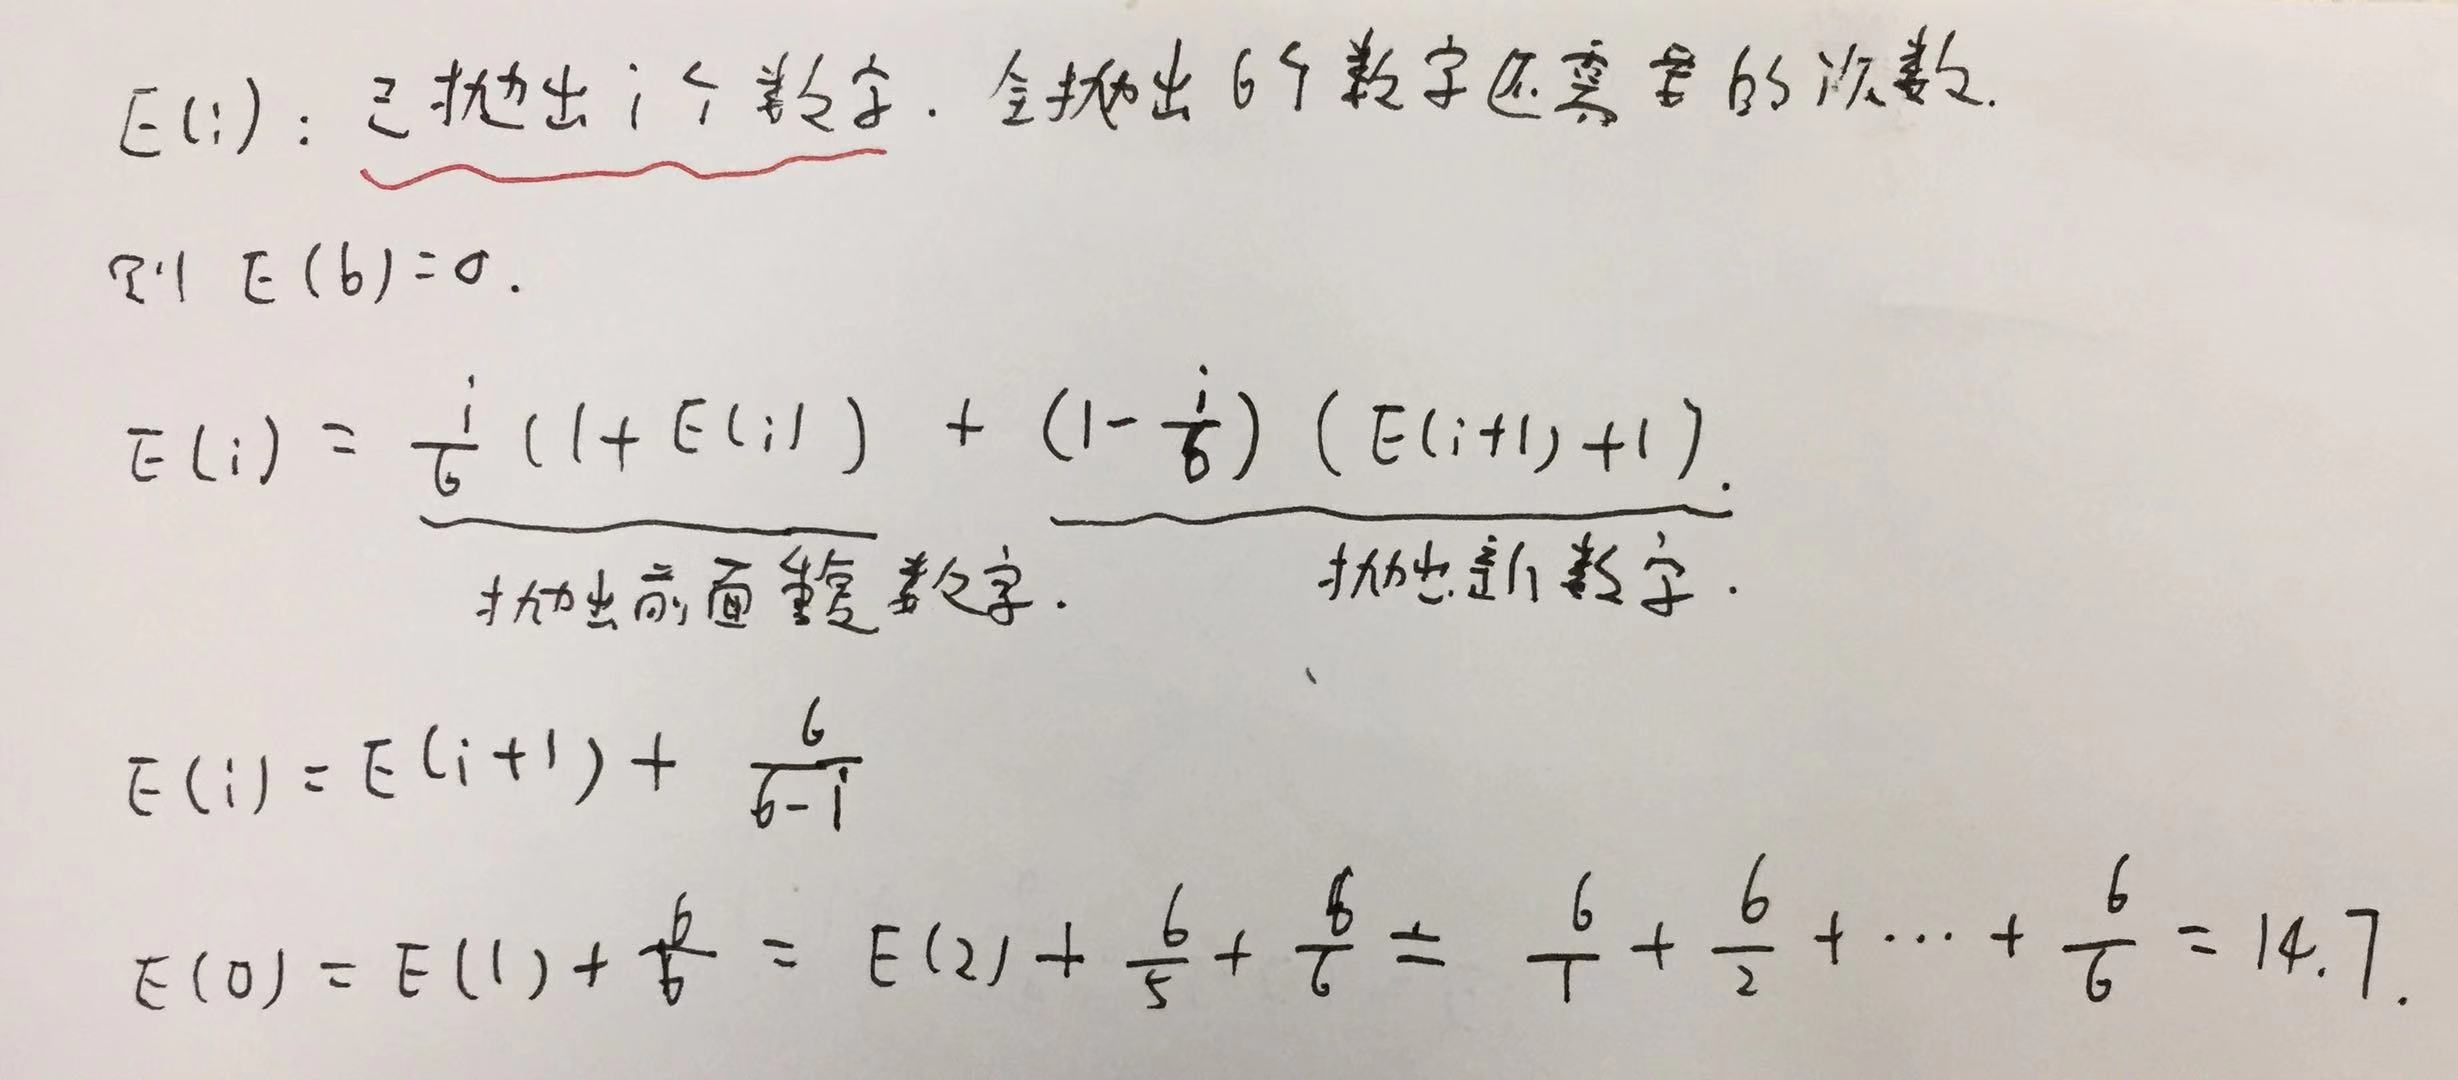 E(i): 已抛出i个数字. 全抛出6个数字还需要的次数.
则 E(6)=0.
E(i) = i/6 (1+E(i)) + (1-i/6) (E(i+1)+1).
抛出前面重复数字. 抛出新数字.
E(i)=E(i+1)+ 6/(6-i)
E(0)=E(1)+6/6 = E(2)+6/5+6/6 = 6/1+6/2+…+6/6=14.7.